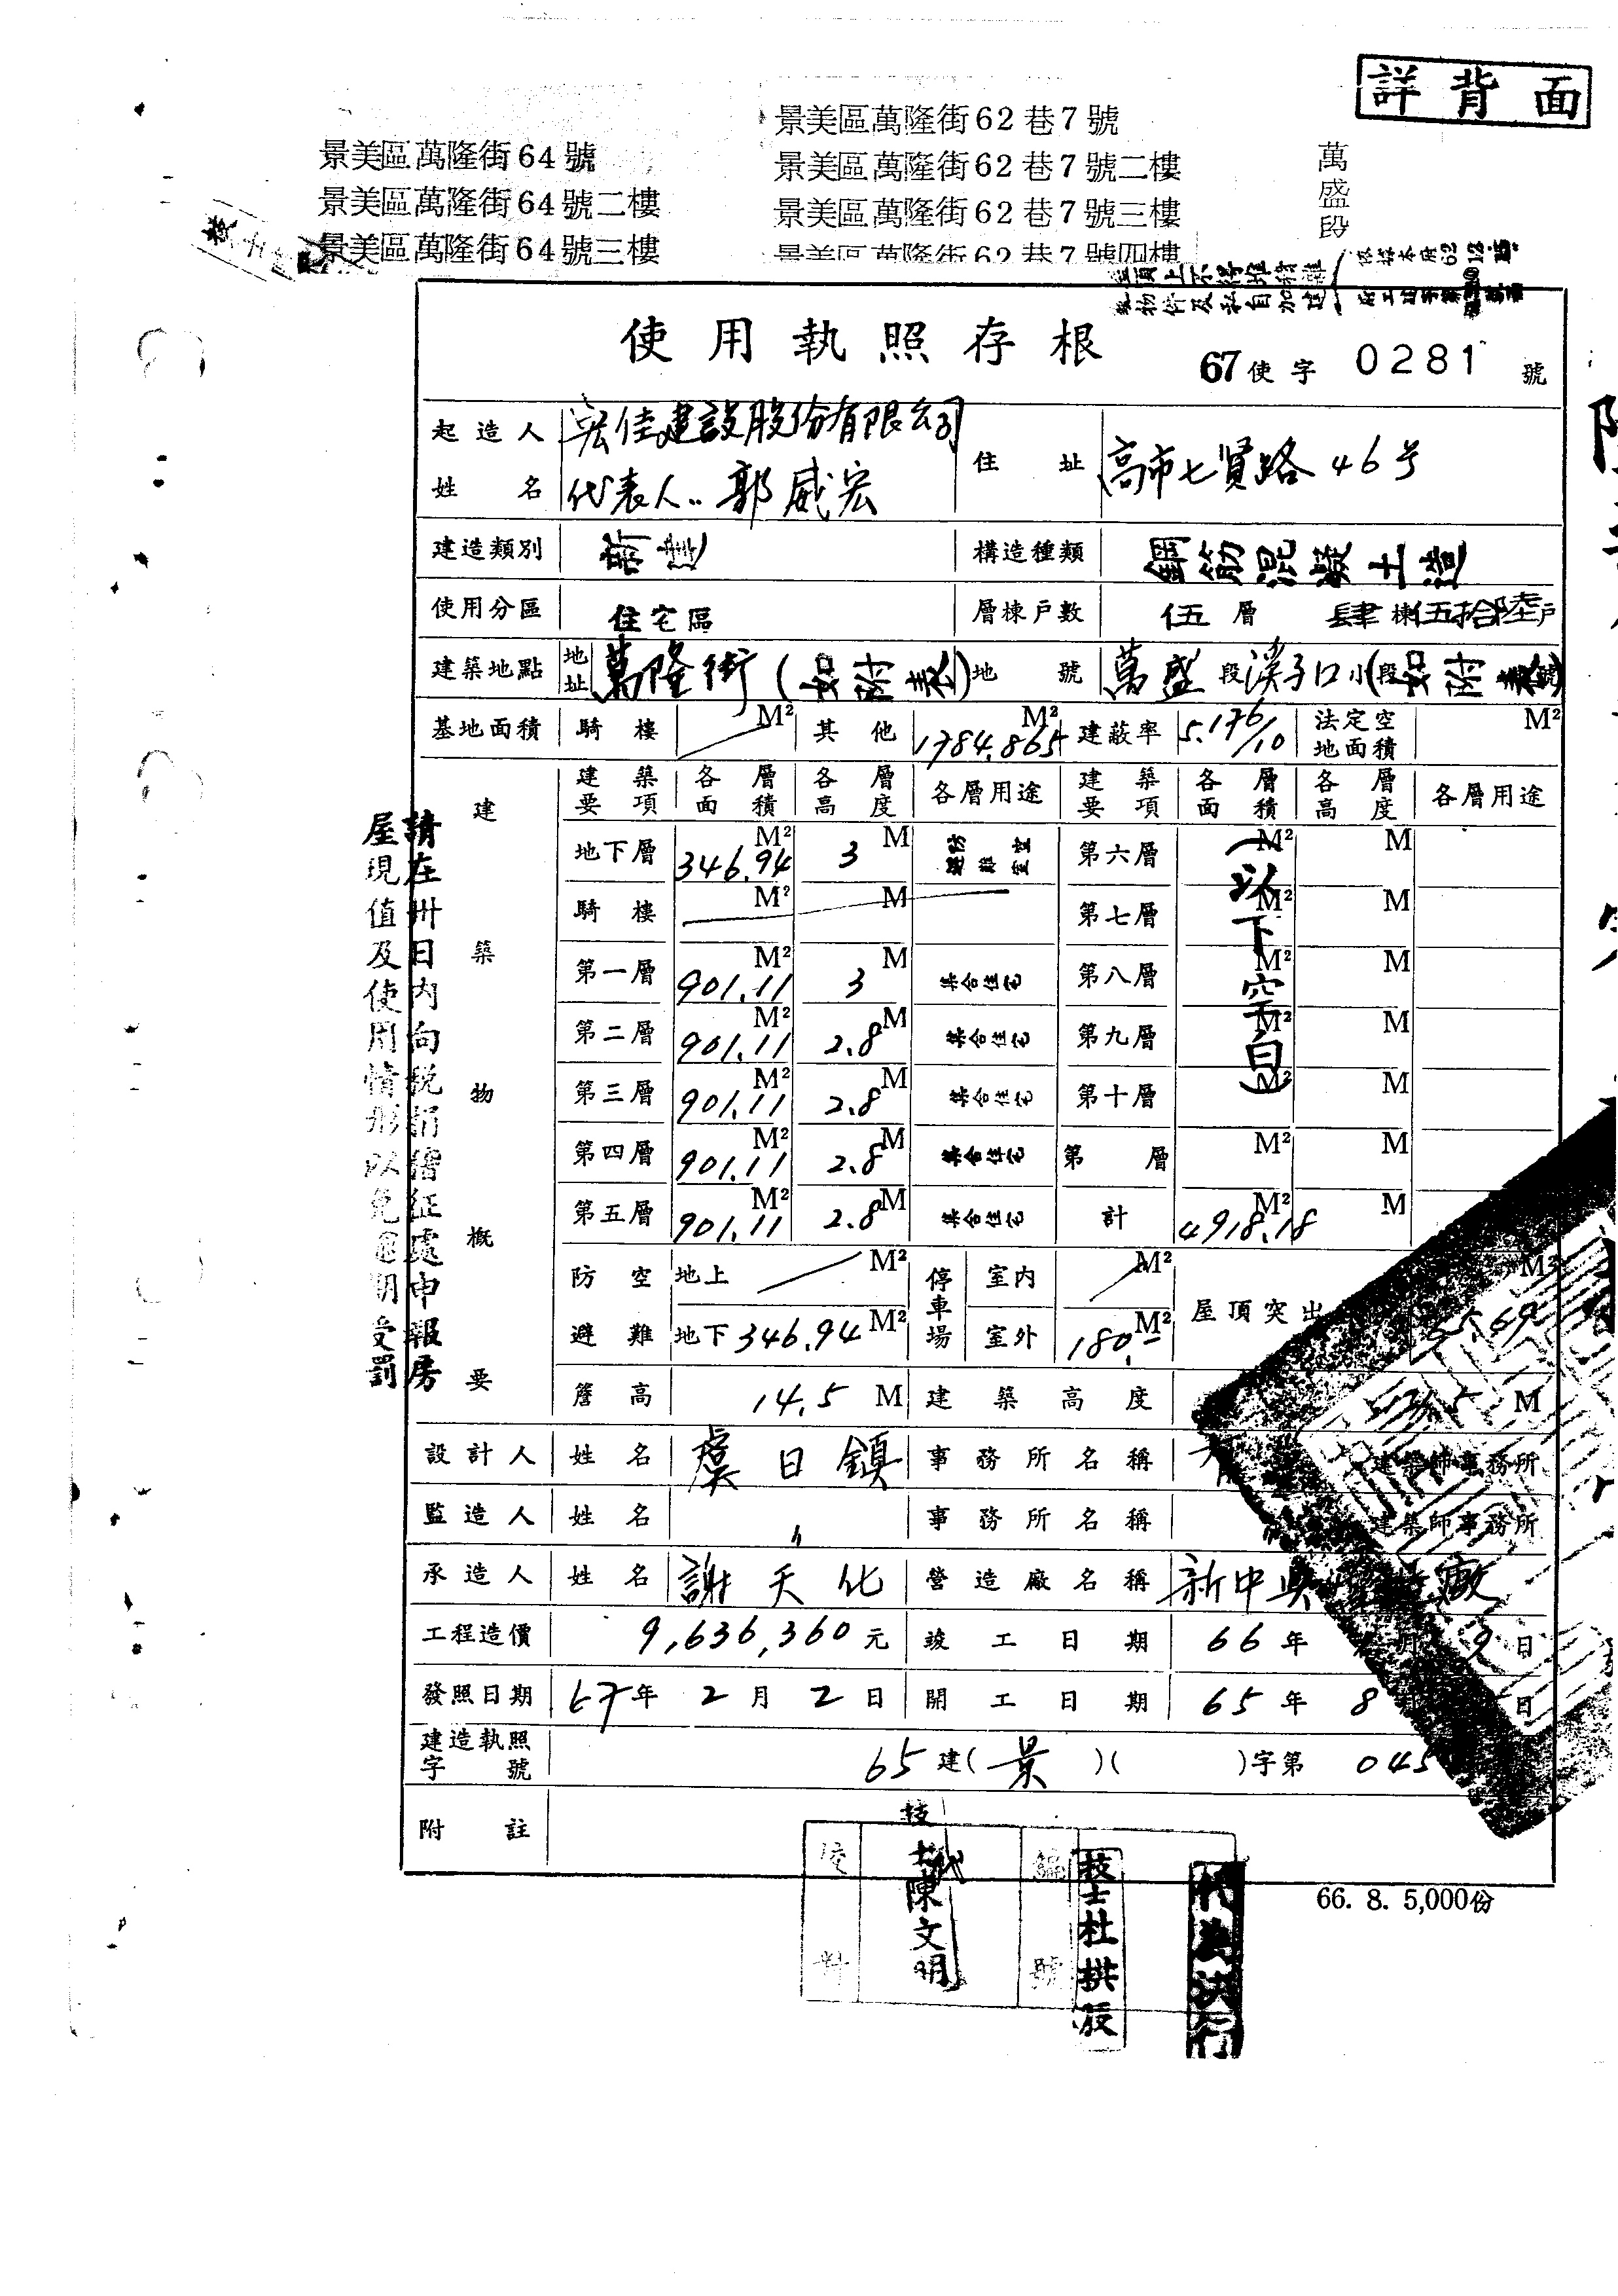 詳背面
景美區萬隆街64號
景美區萬隆街64號二樓
景美區萬隆街64號三樓
景美區萬隆街62巷7號
景美區萬隆街62巷7號二樓
景美區萬隆街62巷7號三樓
景美區萬隆街62巷7號四樓
萬盛段
使用執照存根
67使字 0281 號
起造人姓名 宏佳建設股份有限公司
代表人：郭威宏
住址 高市七賢路46号
建造類別 新建 構造種類 鋼筋混凝土造
使用分區 住宅區 層棟戶數 伍層 肆棟伍拾陸戶
建築地點 地址 萬隆街(如附表) 地號 萬盛段溪子口小段(如附表號)
基地面積 騎樓 M² 其他 1784.865 M² 建蔽率 5.176/10 法定空地面積 M²
建築物概要
建築要項 各層面積 各層高度 各層用途 建築要項 各層面積 各層高度 各層用途
地下層 346.94 M² 3 M 防空避難室 第六層 M² M
騎樓 M² M 第七層 M² M
第一層 901.11 M² 3 M 集合住宅 第八層 M² M
第二層 901.11 M² 2.8 M 集合住宅 第九層 M² M
第三層 901.11 M² 2.8 M 集合住宅 第十層 M² M
第四層 901.11 M² 2.8 M 集合住宅 第 層 M² M
第五層 901.11 M² 2.8 M 集合住宅 計 4918.18 M² M
(以下空白)
防空避難 地上 M² 停車場 室內 M² 屋頂突出
地下 346.94 M² 室外 180.- M²
簷高 14.5 M 建築高度 M
設計人 姓名 虞日鎮 事務所名稱 建築師事務所
監造人 姓名 〃 事務所名稱 建築師事務所
承造人 姓名 謝天化 營造廠名稱 新中央 廠
工程造價 9,636,360元 竣工日期 66年 月 9日
發照日期 67年2月2日 開工日期 65年8 日
建造執照字號 65建(景)( )字第 045
附註
請在卅日內向稅捐稽征處申報房
屋現值及使用情形以免逾期受罰
技士陳文明
代
編號
技士杜拱辰
代為決行
66. 8. 5,000份